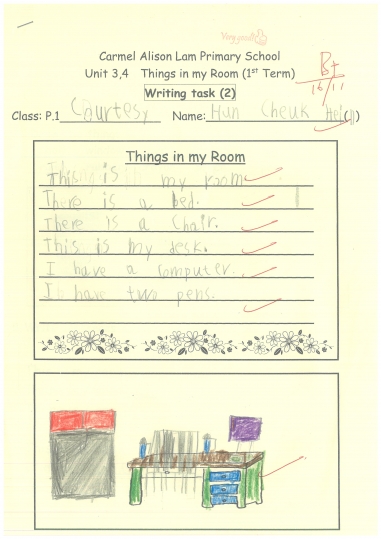 Very good!
Carmel Alison Lam Primary School
Unit 3,4 Things in my Room (1st Term)
B+
16/11
Writing task (2)
Class: P.1 Courtesy Name: Hun Cheuk Hei (11)
Things in my Room
This is my room
There is a bed.
There is a Chair.
This is my desk.
I have a computer.
I have two pens.